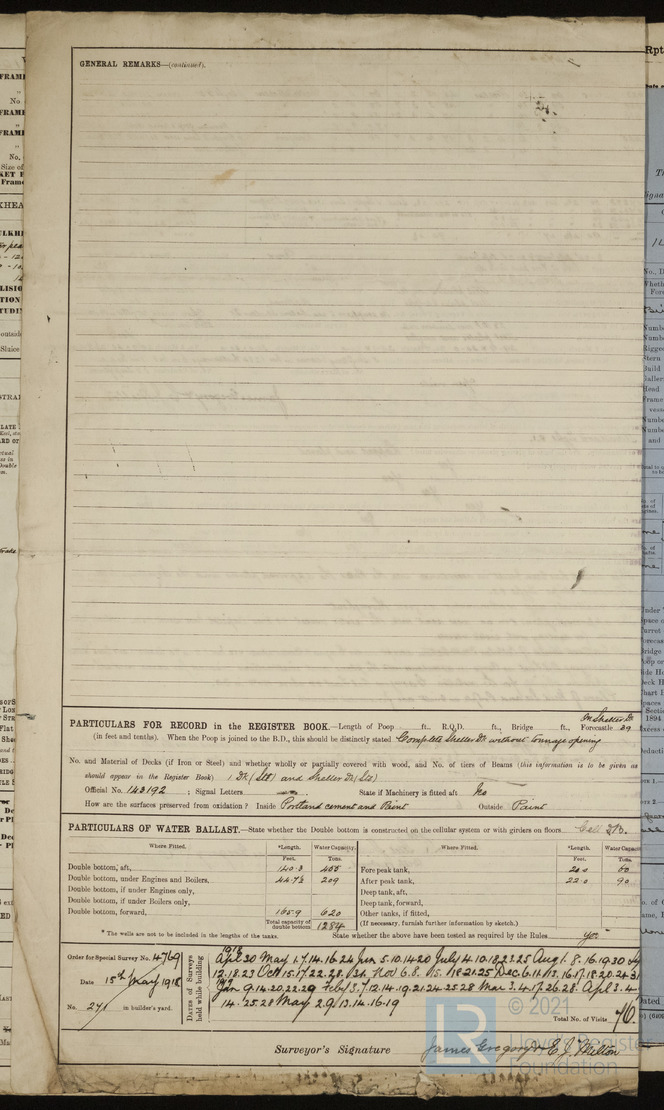 GENERAL REMARKS—(continued).
In Shelter Dk
PARTICULARS FOR RECORD in the REGISTER BOOK.—Length of Poop ft., R.Q.D. ft., Bridge ft., Forecastle 29
(in feet and tenths). When the Poop is joined to the B.D., this should be distinctly stated Complete Shelter Dk without tonnage opening
No. and Material of Decks (if Iron or Steel) and whether wholly or partially covered with wood, and No. of tiers of Beams (this information is to be given as
should appear in the Register Book) 1 Dk (Stl) and Shelter Dk (Stl)
Official No. 143192 ; Signal Letters State if Machinery is fitted aft No
How are the surfaces preserved from oxidation? Inside Portland cement and Paint Outside Paint
PARTICULARS OF WATER BALLAST.—State whether the Double bottom is constructed on the cellular system or with girders on floors Cell D.B.
Where Fitted. *Length. Water Capacity. Where Fitted. *Length. Water Capacity
Feet. Tons. Feet. Tons.
Double bottom, aft, 140.3 455 Fore peak tank, 20.0
Double bottom, under Engines and Boilers, 209 After peak tank, 22.0 90
Double bottom, if under Engines only, Deep tank, aft,
Double bottom, if under Boilers only, Deep tank, forward,
Double bottom, forward, 165.9 620 Other tanks, if fitted,
Total capacity of double bottom 1284 (If necessary, furnish further information by sketch.)
* The wells are not to be included in the lengths of the tanks. State whether the above have been tested as required by the Rules yes
Order for Special Survey No. 4769
Date 15th May 1918
No. 271 in builder's yard.
DATES of Surveys held while building
1918
Apr 30 May 1.7.14.16.24 Jun 5.10.14.20 July 4.10.18.23.25 Aug 1.8.16.19.30
12.18.23 Oct 15.17.22.28. Nov 6.8. 18.21.25 Dec 6.11.13.16.17.18.20.24.31
Jan 9.14.20.22.29 Feb 1.3.7.12.14.19.21.24.25.28 Mar 3.4.17.26.28. Apl 3.4
14.25.28 May 2.9.13.14.16.19
Total No. of Visits 76.
Surveyor's Signature James Gregory & E. J. Milton
© 2021
LR
Lloyd's Register
Foundation